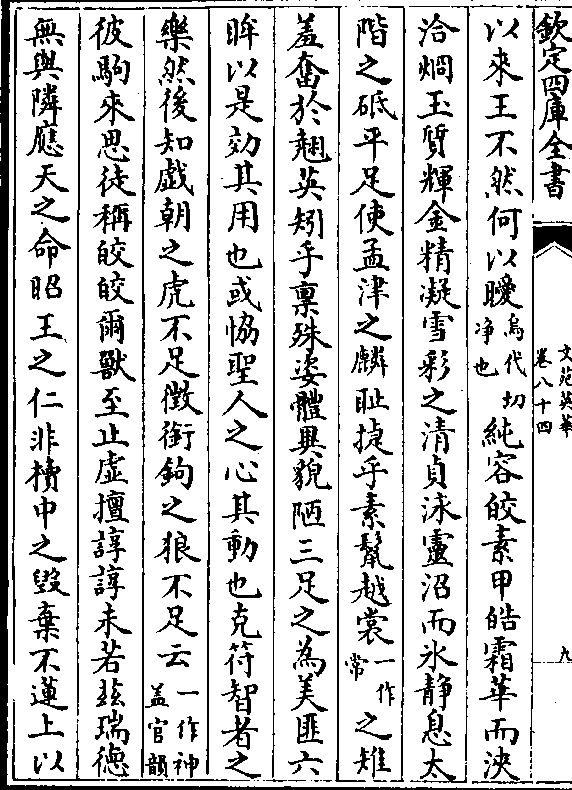 欽定四庫全書
文苑英華
卷八十四
九
以來王不然何以曖烏代切净也純容皎素甲皓霜華而浹
洽烱玉質輝金精凝雪彩之清貞泳靈沼而氷靜息太
階之砥平足使孟津之麟耻㨗乎素鬛越裳一作常之雉
羞奮於翹英矧乎禀殊姿體異貌陋三足之為美匪六
眸以是效其用也或恊聖人之心其動也克符智者之
樂然後知戯朝之虎不足徴銜鉤之狼不足云一作神盖官韻
彼駒來思徒稱皎皎爾獸至止虚擅諄諄未若兹瑞徳
無與隣應天之命昭王之仁非櫝中之毀棄不蓮上以